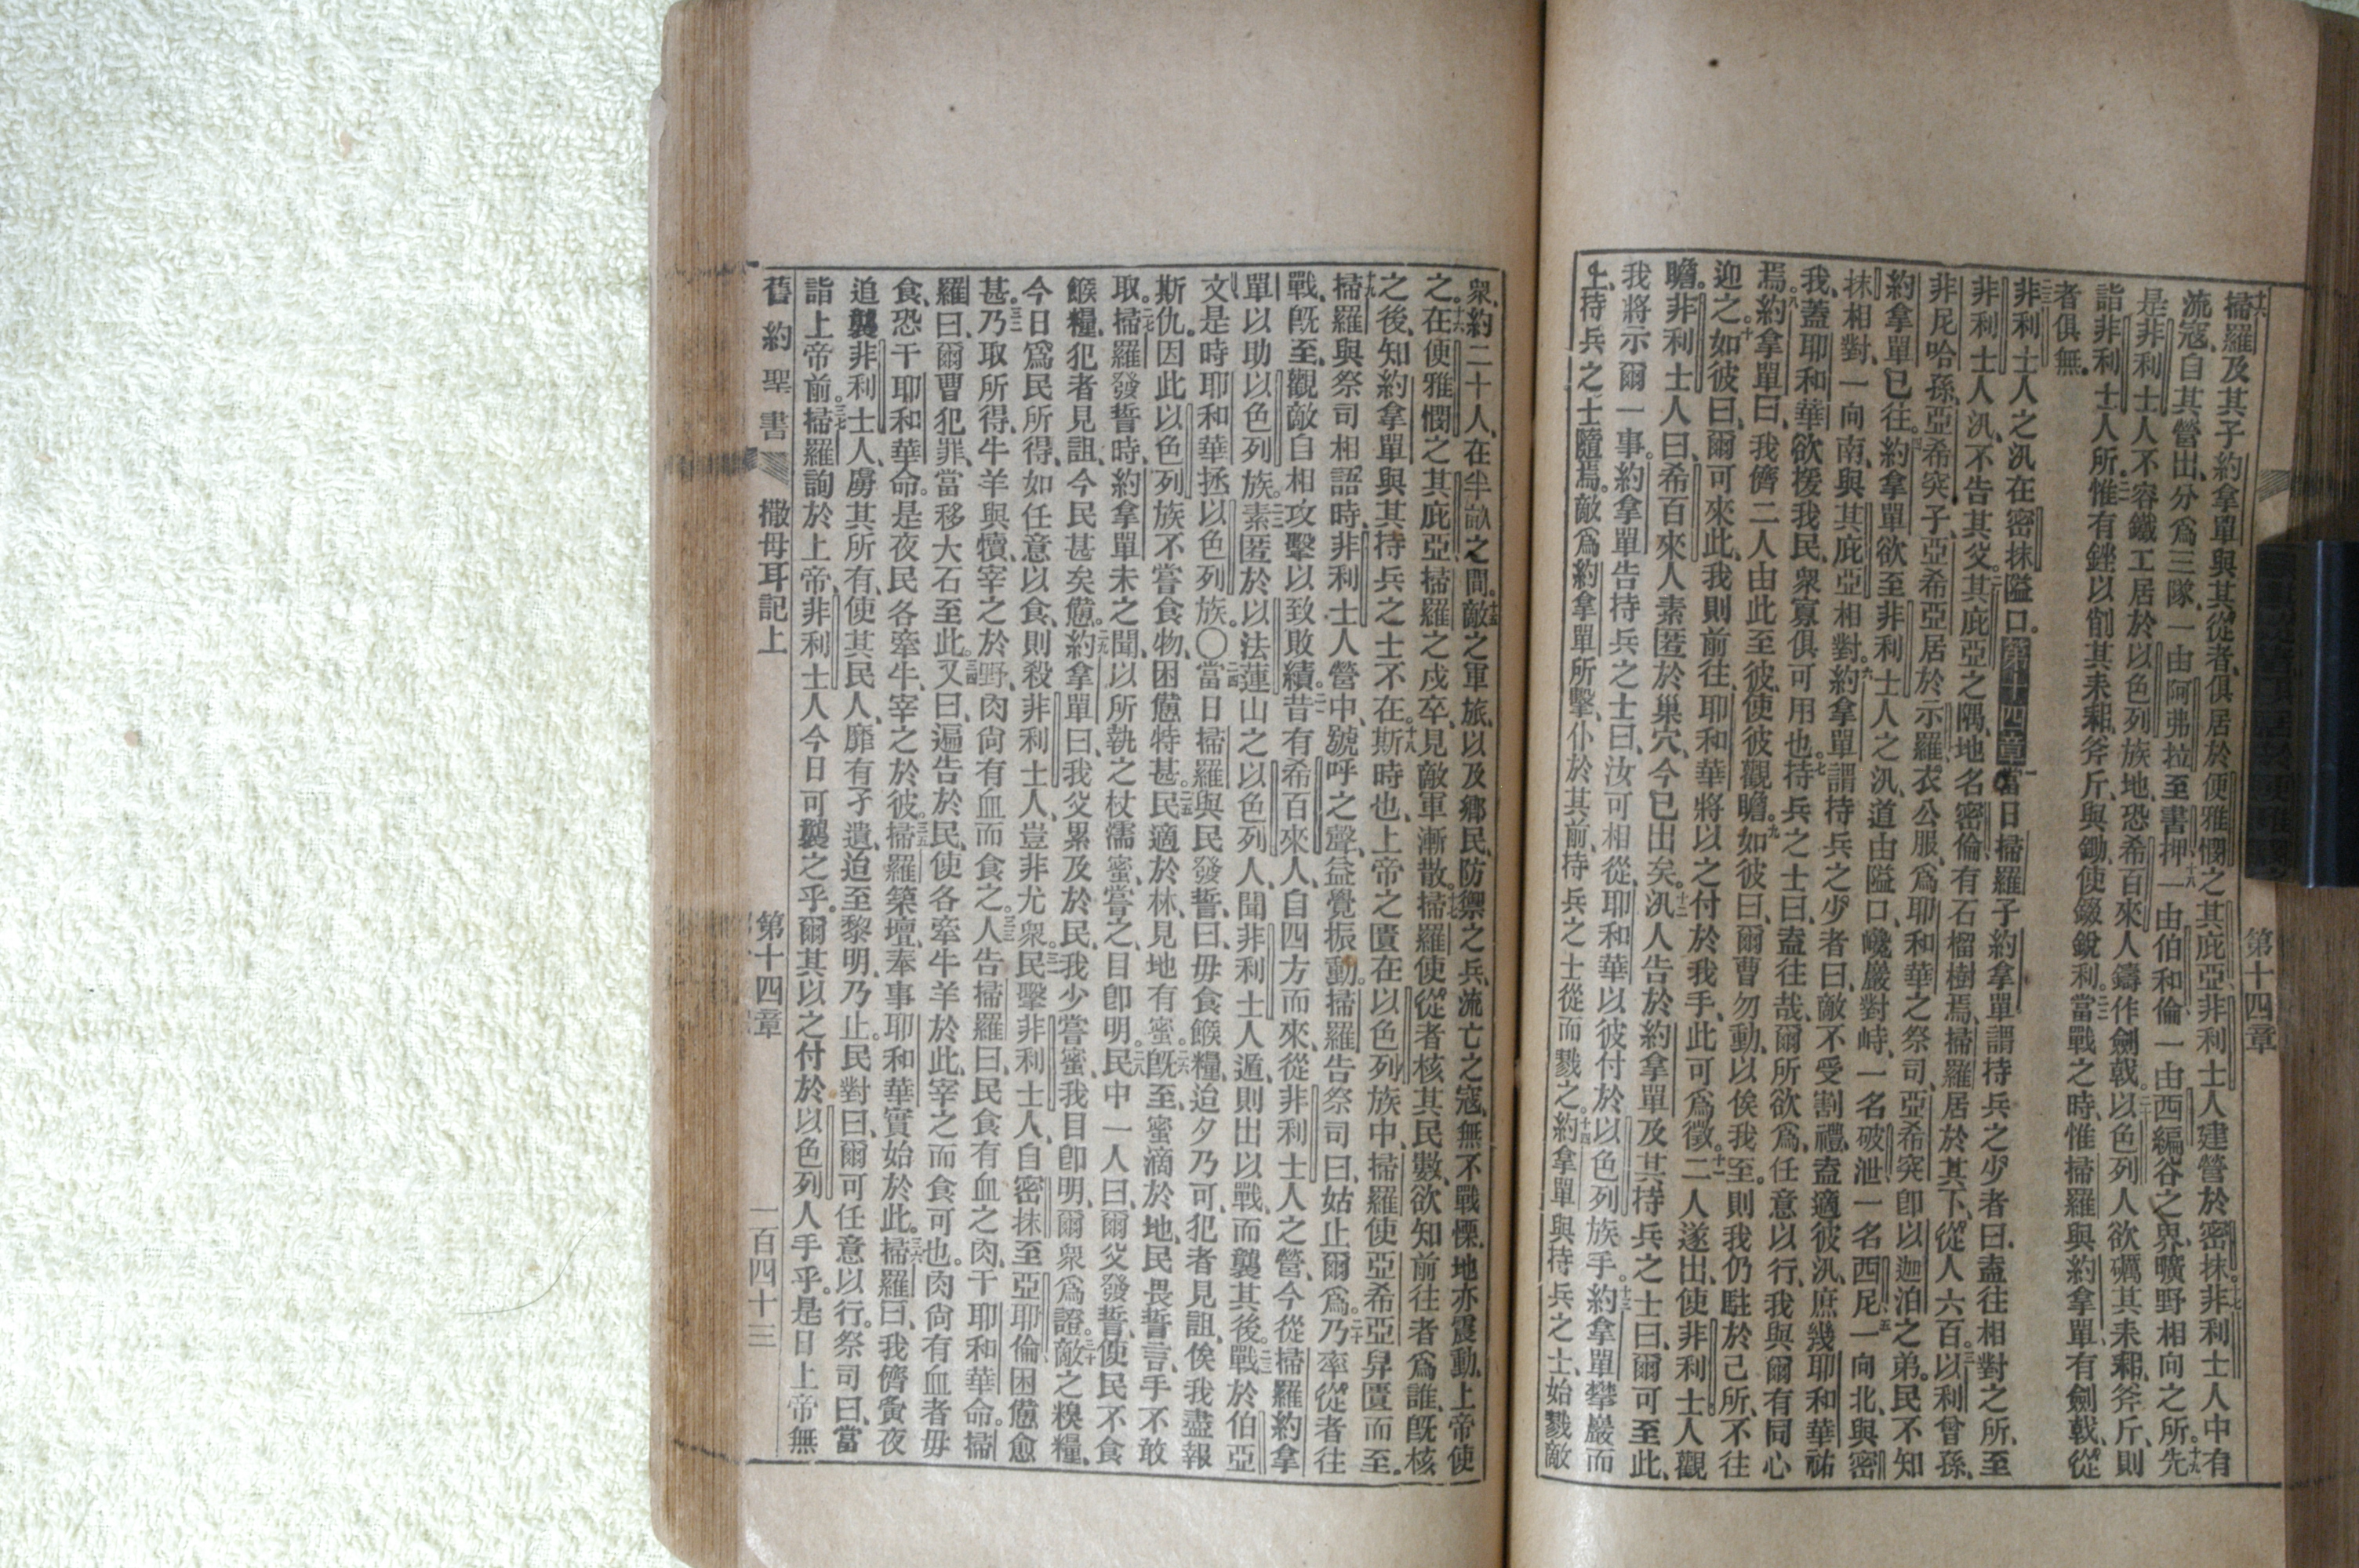 掃羅及其子約拿單與其從者、俱居於便雅憫之其庇亞、非利士人建營於密抹。十七非利士人中有
流寇、自其營出、分爲三隊、一由阿弗拉至書押、十八一由伯和倫、一由西編谷之界、曠野相向之所。十九先
是非利士人不容鐵工居於以色列族地、恐希百來人鑄作劍戟。二十以色列人欲礪其耒耜、斧斤、則
詣非利士人所。惟有銼以剒其耒耜、斧斤、與鋤、使錣銳利。當戰之時、惟掃羅與約拿單有劍戟、從
者俱無。
非利士人之汛在密抹隘口。第十四章當日掃羅子約拿單謂持兵之少者曰、盍往相對之所、至
非利士人汛、不告其父。二其庇亞之隅、地名密倫、有石榴樹焉、掃羅居於其下、從人六百。三以利曾孫、
非尼哈孫、亞希突子、亞希亞居於示羅、衣公服、爲耶和華之祭司、亞希突卽以迦泊之弟。民不知
約拿單已往。四約拿單欲至非利士人之汛、道由隘口、巉巖對峙、一名破泄、一名西尼、五一向北、與密
抹相對、一向南、與其庇亞相對。六約拿單謂持兵之少者曰、敵不受割禮、盍適彼汛、庶幾耶和華祐
我、蓋耶和華欲援我民、衆寡俱可用也。七持兵之士曰、盍往哉、爾所欲爲、任意以行、我與爾有同心
焉。八約拿單曰、我儕二人由此至彼、使彼觀瞻。九如彼曰、爾曹勿動、以俟我至。則我仍駐於己所、不往
迎之。十如彼曰、爾可來此、我則前往、耶和華將以之付於我手、此可爲徵。十一二人遂出、使非利士人觀
瞻。非利士人曰、希百來人素匿於巢穴、今已出矣。十二汛人告於約拿單及其持兵之士曰、爾可至此、
我將示爾一事。約拿單告持兵之士曰、汝可相從、耶和華以彼付於以色列族手。十三約拿單攀巖而
上、持兵之士隨焉。敵爲約拿單所擊、仆於其前、持兵之士從而戮之。十四約拿單與持兵之士、始戮敵
衆、約二十人、在半畝之間。十五敵之軍旅、以及鄉民、防禦之兵、流亡之寇、無不戰慄、地亦震動、上帝使
之。十六在便雅憫之其庇亞掃羅之戍卒、見敵軍漸散。十七掃羅使從者核其民數、欲知前往者爲誰、旣核
之後、知約拿單與其持兵之士不在。十八斯時也、上帝之匱在以色列族中、掃羅使亞希亞舁匱而至。
十九掃羅與祭司相語時、非利士人營中、號呼之聲、益覺振動。掃羅告祭司曰、姑止爾爲。二十乃率從者往
戰、旣至、觀敵自相攻擊、以致敗績。二一昔有希百來人、自四方而來、從非利士人之營、今從掃羅約拿
單、以助以色列族。二二素匿於以法蓮山之以色列人、聞非利士人遁、則出以戰、而襲其後。二三戰於伯亞
文、是時耶和華拯以色列族。○二四當日掃羅與民發誓、曰、毋食餱糧、迨夕乃可、犯者見詛、俟我盡報
斯仇。因此以色列族不嘗食物、困憊特甚。二五民適於林、見地有蜜。二六旣至、蜜滴於地、民畏誓言、手不敢
取。二七掃羅發誓時、約拿單未之聞、以所執之杖濡蜜、嘗之、目卽明。二八民中一人曰、爾父發誓、使民不食
餱糧、犯者見詛、今民甚矣憊。二九約拿單曰、我父累及於民、我少嘗蜜、我目卽明、爾衆爲證。三十敵之糗糧、
今日爲民所得、如任意以食、則殺非利士人、豈非尤衆。三一民擊非利士人、自密抹至亞耶倫、困憊愈
甚。三二乃取所得、牛羊與犢、宰之於野、肉尙有血而食之。三三人告掃羅曰、民食有血之肉、干耶和華命。掃
羅曰、爾曹犯罪、當移大石至此。三四又曰、遍告於民、使各牽牛羊於此、宰之而食可也。肉尙有血者毋
食、恐干耶和華命。是夜民各牽牛、宰之於彼。三五掃羅築壇、奉事耶和華、實始於此。三六掃羅曰、我儕夤夜
追襲非利士人、虜其所有、使其民人、靡有孑遺、迨至黎明、乃止。民對曰、爾可任意以行。祭司曰、當
詣上帝前。三七掃羅詢於上帝、非利士人今日可襲之乎。爾其以之付於以色列人手乎。是日上帝無
舊約聖書 撒母耳記上 第十四章 一百四十三
第十四章